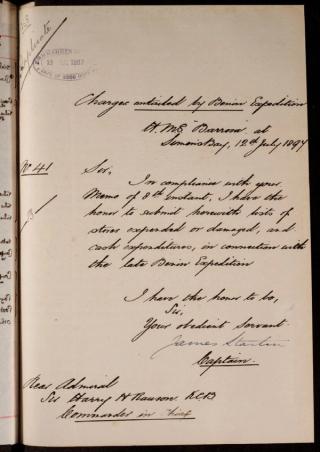 Duplicate
Charges entailed by Benin Expedition
H.M.S. "Barrosa" at
Simons Bay, 12th July 1897
No 41
Sir,
In compliance with your
Memo of 8th instant, I have the
honor to submit herewith lists of
stores expended or damaged, and
cash expenditures, in connection with
the late Benin Expedition
I have the honor to be,
Sir,
Your obedient Servant
James Startin
Captain.
Rear Admiral
Sir Harry H Rawson KCB
Commander in Chief